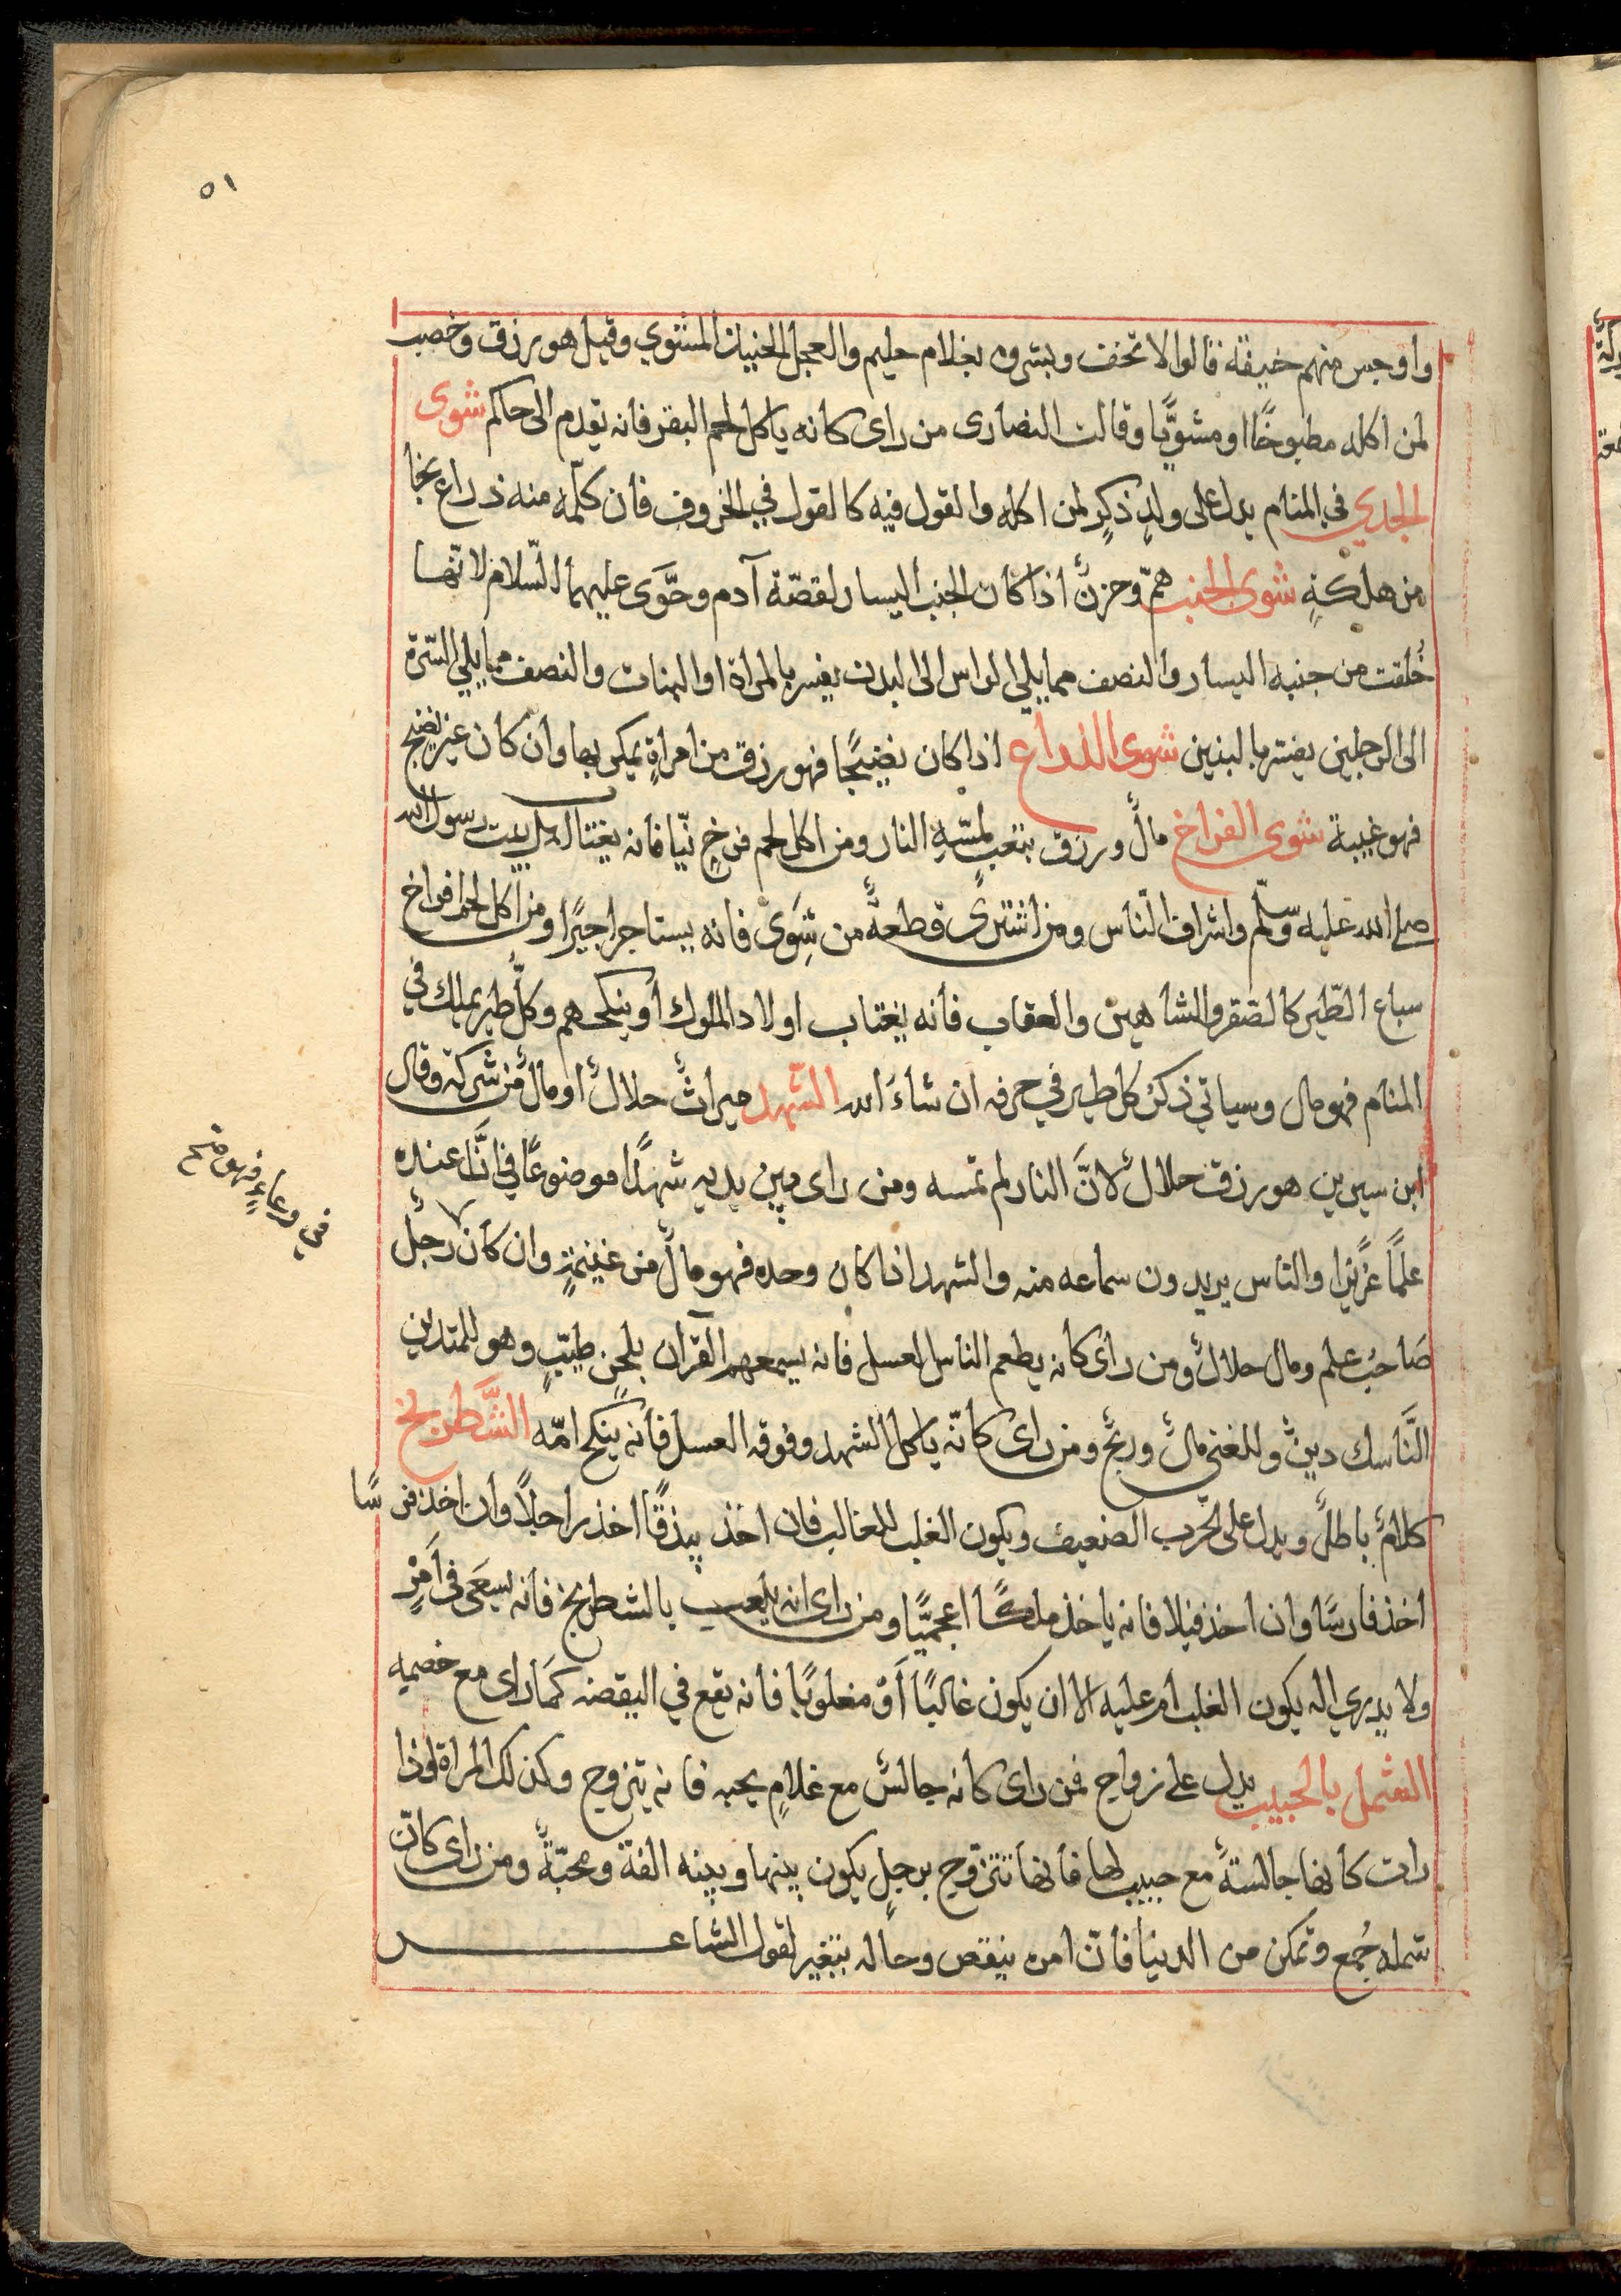 ٥١
واوجس منهم خيفة قالوا لا تخف وبشروه بغلام حليم والعجل الحنيذ المشوي وقيل هو رزق وخصب
لمن اكله مطبوخًا او مشويًّا وقالت النصارى من راى كانه ياكل لحم البقر فانه يقدم الى حاكم شوى
الجدي في المنام يدل على ولدٍ ذكرٍ لمن اكله والقول فيه كالقول في الخروف فان كلّمه منه ذراع نجا
من هلكةٍ شوى الجنب همٌّ وحزنٌ اذا كان الجنب اليسار لقصّة آدم وحوَّى عليهما السّلام لانّها
خُلقت من جنبه اليسار والنصف مما يلي الراس الى البدن يفسر بالمراة او البنات والنصف مما يلي السّرة
الى الرجلين يفسّر بالبنين شوى الذراع اذا كان نضيجًا فهو رزق من امراةٍ يمكر بها وان كان غير نضيج
فهو غيبة شوى الفراخ مالٌ ورزق بتعبٍ لمسّهِ النار ومن اكل لحم فرخٍ نيّا فانه يغتاب اهل بيت رسول الله
صلى الله عليه وسلّم واشراف النّاس ومن اشترى قطعةً من شِوَى فانه يستاجر اجيرًا ومن اكل لحم افراخ
سباع الطّير كالصّقر والشاهين والعقاب فانه يغتاب اولاد الملوك او ينكحهم وكلُّ طير يملك في
المنام فهو مال وسياتي ذكر كل طير في حرفه ان شاءَ الله الشهد ميراثٌ حلالٌ او مالٌ من شركة وقال
ابن سيرين هو رزق حلالٌ لانَّ النار لم تمسه ومن راى بين يديه شهدًا موضوعًا فإنَّ عنده
علمًا عزيزا والناس يريدون سماعه منه والشهد اذا كان وحده فهو مالٌ من غنيمةٍ وان كان رجلٌ
في وعاءٍ فهو متح
صَاحبُ علم ومال حلالٌ ومن راى كانه يطعم الناس العسل فانه يسمعهم القرآن بلحنٍ طيّبٍ وهو للمتدين
النَّاسك دينٌ وللغني مالٌ وربحٌ ومن راى كانّه ياكل الشهد وفوقه العسل فانه ينكح امّه الشَّطرنج
كلامٌ باطلٌ ويدل على الحرب الضعيف ويكون الغلب للغالب فان اخذ بيذقًا اخذ راجلاً وان اخذ فرسًا
اخذ فارسًا وان اخذ فيلا فانه ياخذ ملكًا اعجميًّا ومن راى انه يلعب بالشطرنج فانه يسعَى في اَمْرٍ
ولا يدري اله يكون الغلب ام عليه الا ان يكون غالبًا اَوْ مغلوبًا فانه يقع في اليقضه كمَا راى مع خصمه
الشمل بالحبيب يدل على زواج فمن راى كانه جالسٌ مع غلامٍ يحبه فانه يتزوج وكذلك المراة اذا
رات كانها جالسةً مع حبيب لها فانها تتزوج برجلٍ يكون بينها وبينه الفة ومحبّةٌ ومن راى كانّ
شمله جُمع وتمكن من الدنيا فانّ امره ينقص وحاله يتغير لقول الشاعر